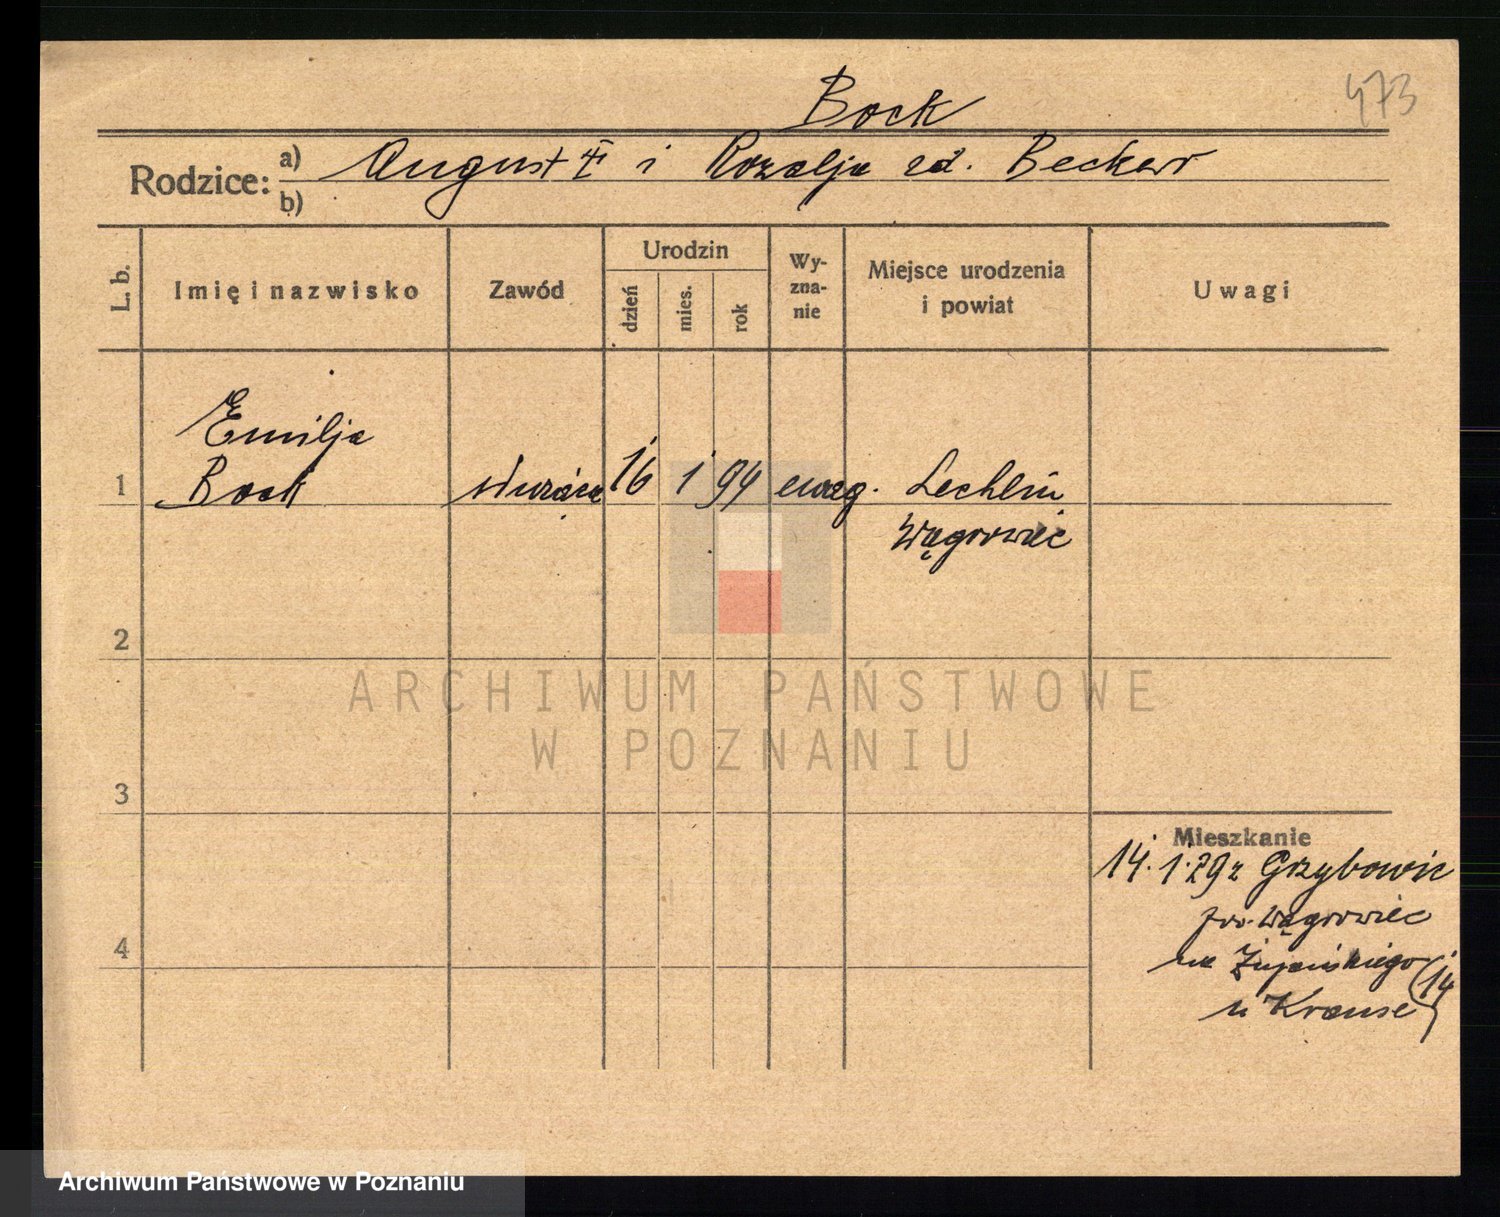 Bock
473
Rodzice:
a) August † i Rozalja zd. Becker
b)
L. b.
Imię i nazwisko
Zawód
Urodzin
dzień
mies.
rok
Wy-
zna-
nie
Miejsce urodzenia
i powiat
Uwagi
Emilja
1 Bock służąca 16 1 94 ewag. Lechlin
Wągrowiec
2
ARCHIWUM PAŃSTWOWE
W POZNANIU
3
Mieszkanie
14.1.29 z Grzybowic
pow. Wągrowiec
na
4
u Krause
14
Archiwum Państwowe w Poznaniu